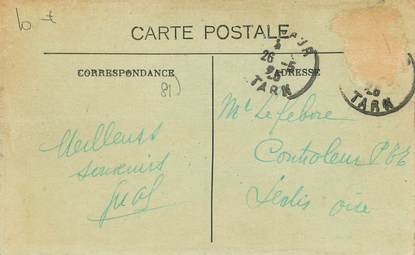 10 -€
CARTE POSTALE
CORRESPONDANCE
ADRESSE
81)
26-5
25
TARN
25
TARN
Meilleurs
souvenirs
Mr Lefebvre
Controleur P
oise